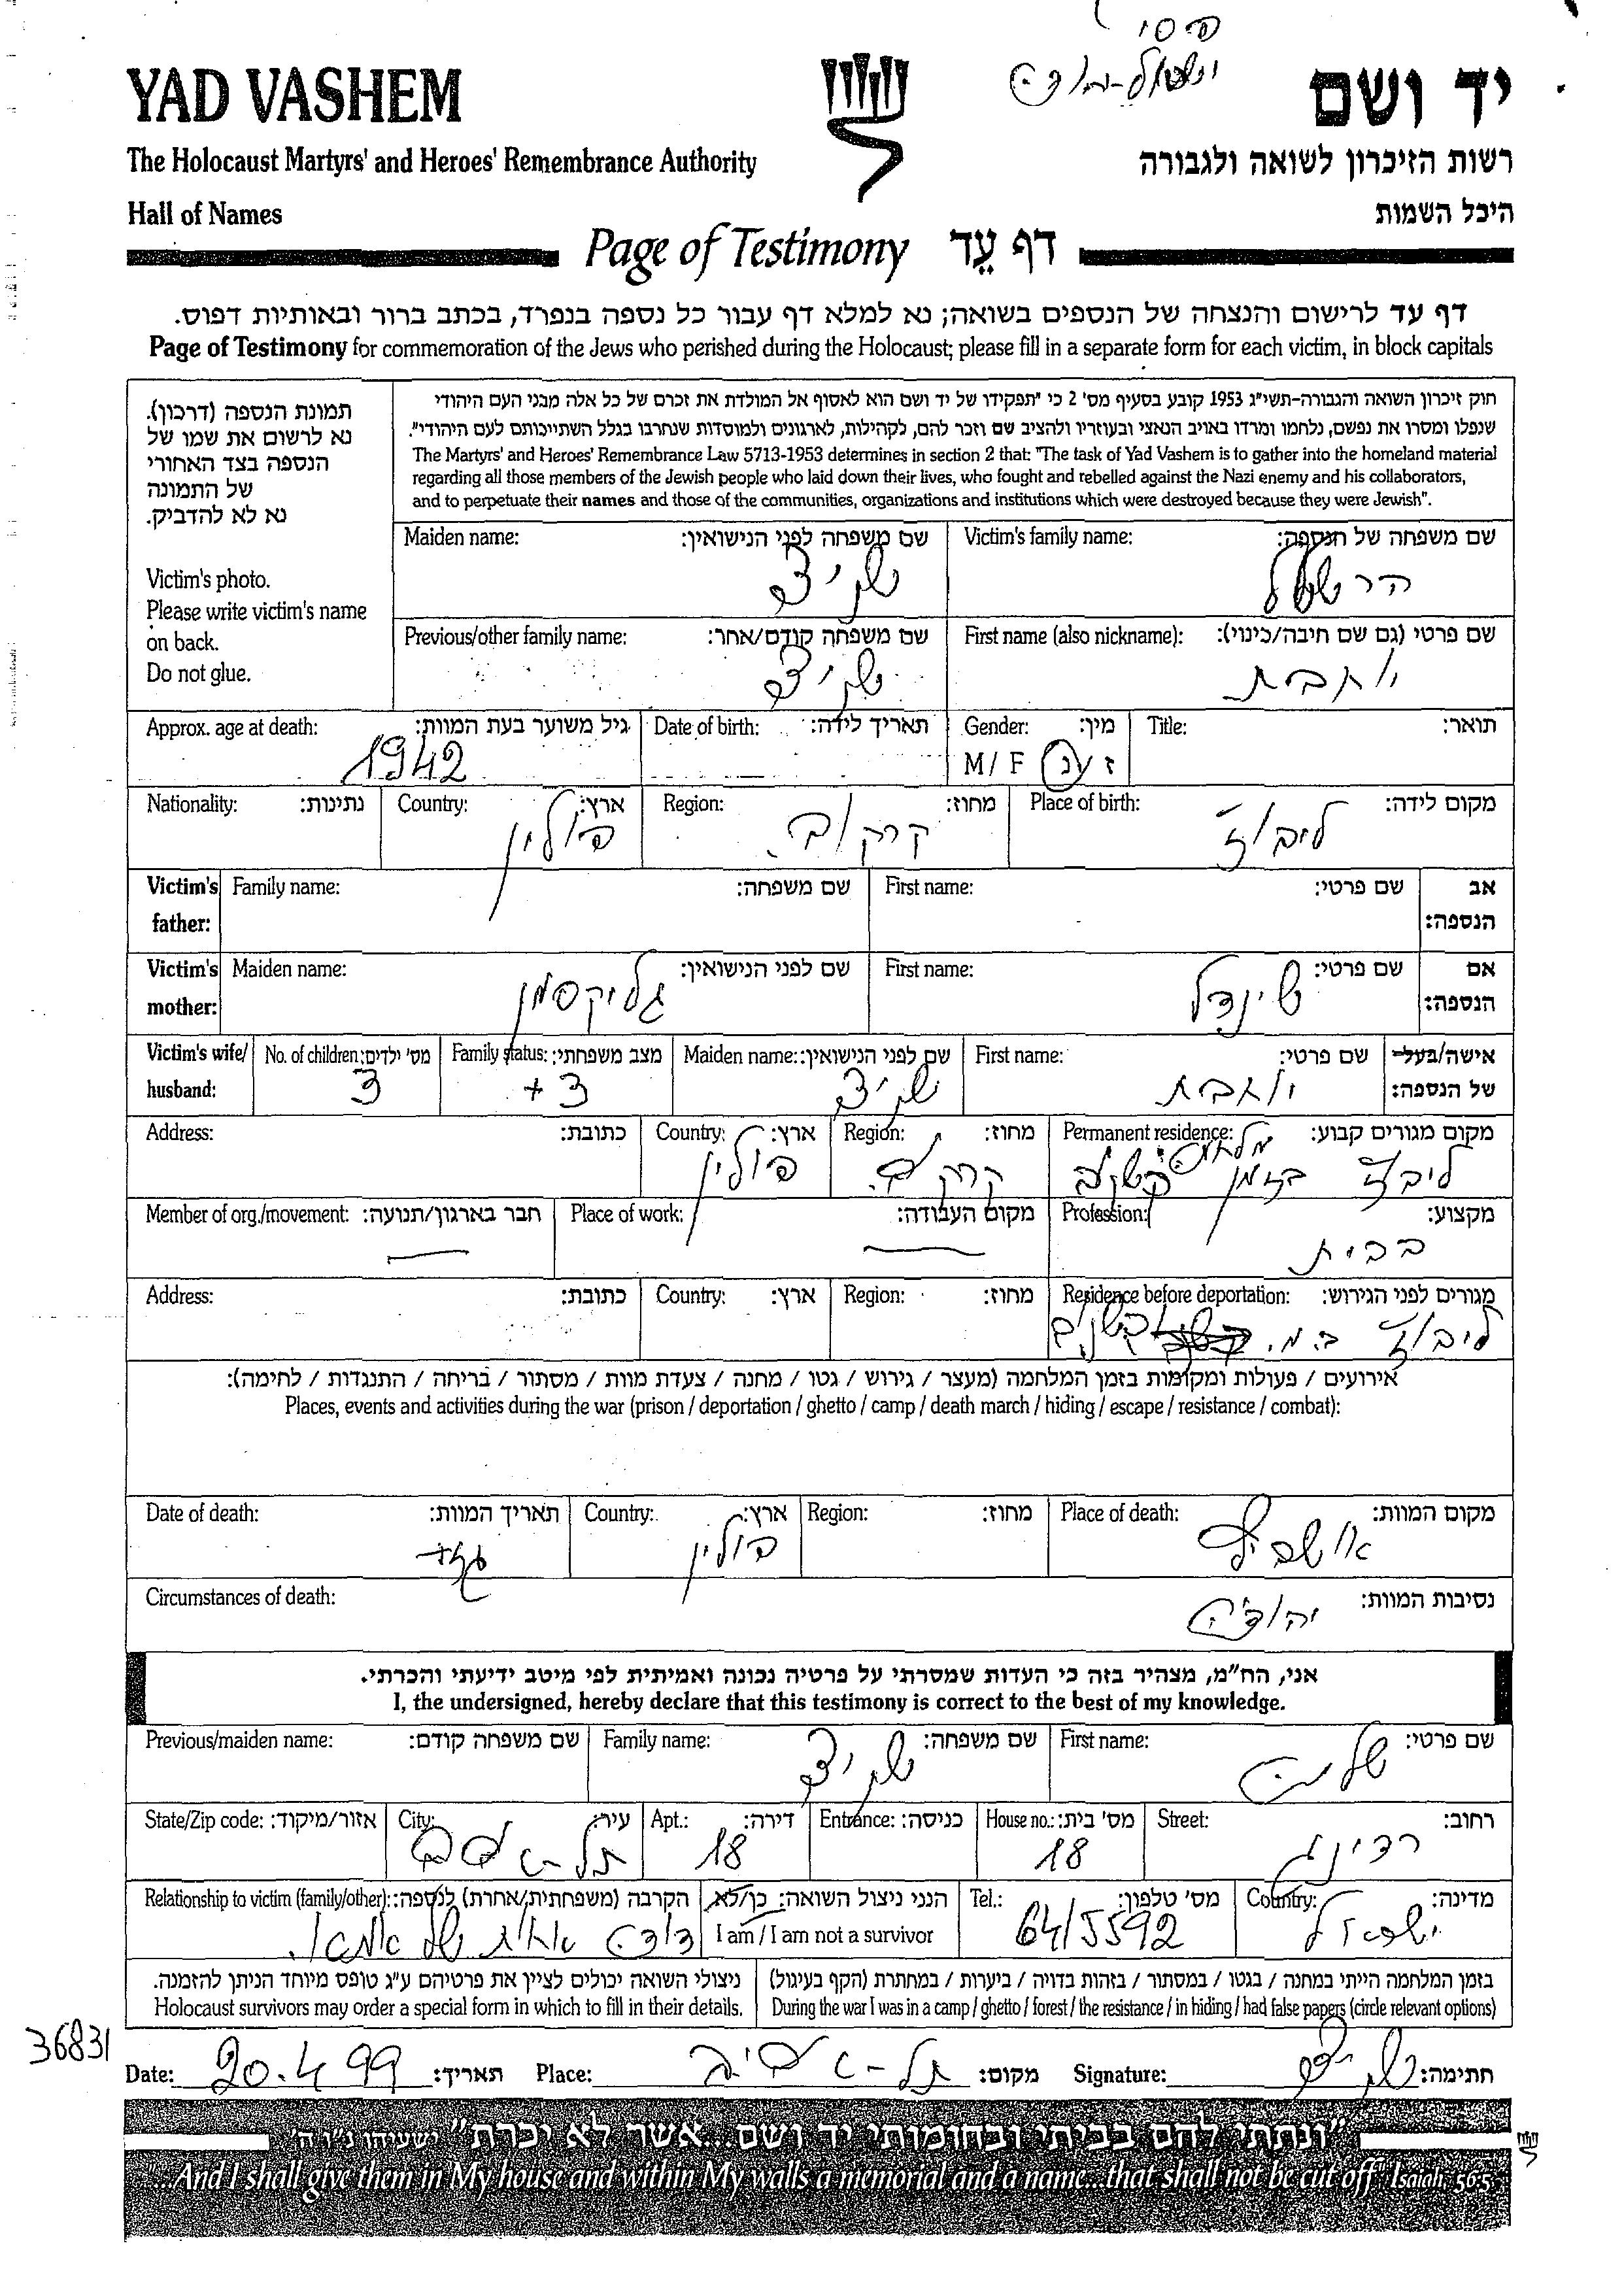 YAD VASHEM
יד ושם
The Holocaust Martyrs' and Heroes' Remembrance Authority
רשות הזיכרון לשואה ולגבורה
Hall of Names
היכל השמות
Page of Testimony דף עֵד
דף עד לרישום והנצחה של הנספים בשואה; נא למלא דף עבור כל נספה בנפרד, בכתב ברור ובאותיות דפוס.
Page of Testimony for commemoration of the Jews who perished during the Holocaust; please fill in a separate form for each victim, in block capitals
תמונת הנספה (דרכון).
נא לרשום את שמו של
הנספה בצד האחורי
של התמונה
נא לא להדביק.
Victim's photo.
Please write victim's name
on back.
Do not glue.
חוק זיכרון השואה והגבורה-תשי"ג 1953 קובע בסעיף מס' 2 כי "תפקידו של יד ושם הוא לאסוף אל המולדת את זכרם של כל אלה מבני העם היהודי
שנפלו ומסרו את נפשם, נלחמו ומרדו באויב הנאצי ובעוזריו ולהציב שם וזכר להם, לקהילות, לארגונים ולמוסדות שנחרבו בגלל השתייכותם לעם היהודי".
The Martyrs' and Heroes' Remembrance Law 5713-1953 determines in section 2 that: "The task of Yad Vashem is to gather into the homeland material
regarding all those members of the Jewish people who laid down their lives, who fought and rebelled against the Nazi enemy and his collaborators,
and to perpetuate their names and those of the communities, organizations and institutions which were destroyed because they were Jewish".
Victim's family name: שם משפחה של הנספה:
Maiden name: שם משפחה לפני הנישואין:
First name (also nickname): שם פרטי (גם שם חיבה/כינוי):
Previous/other family name: שם משפחה קודם/אחר:
Title: תואר:
Gender: מין: M / F ז / נ
Date of birth: תאריך לידה:
Approx. age at death: גיל משוער בעת המוות: 1942
Place of birth: מקום לידה: ליבוז'
Region: מחוז: קרקוב.
Country: ארץ: פולין
Nationality: נתינות:
Victim's father: אב הנספה:
First name: שם פרטי:
Family name: שם משפחה:
Victim's mother: אם הנספה:
First name: שם פרטי: שינדל
Maiden name: שם לפני הנישואין: גליקסמן
Victim's wife/ husband: אישה/בעל של הנספה:
First name: שם פרטי:
Maiden name: שם לפני הנישואין:
Family status: מצב משפחתי: + 3
No. of children: מס' ילדים: 3
Permanent residence: מקום מגורים קבוע: ליבוז' בזמן
Region: מחוז: קרקוב.
Country: ארץ: פולין
Address: כתובת:
Profession: מקצוע: בבית
Place of work: מקום העבודה:
Member of org./movement: חבר בארגון/תנועה:
Residence before deportation: מגורים לפני הגירוש: ליבוז' ב.מ.
Region: מחוז:
Country: ארץ:
Address: כתובת:
אירועים / פעולות ומקומות בזמן המלחמה (מעצר / גירוש / גטו / מחנה / צעדת מוות / מסתור / בריחה / התנגדות / לחימה):
Places, events and activities during the war (prison / deportation / ghetto / camp / death march / hiding / escape / resistance / combat):
Place of death: מקום המוות: אושביץ
Region: מחוז:
Country: ארץ: פולין
Date of death: תאריך המוות:
Circumstances of death: נסיבות המוות: יהודיה
אני, הח"מ, מצהיר בזה כי העדות שמסרתי על פרטיה נכונה ואמיתית לפי מיטב ידיעתי והכרתי.
I, the undersigned, hereby declare that this testimony is correct to the best of my knowledge.
First name: שם פרטי:
Family name: שם משפחה:
Previous/maiden name: שם משפחה קודם:
Street: רחוב: רדינג
House no.: מס' בית: 18
Entrance: כניסה:
Apt.: דירה: 18
City: עיר: תל-אביב
State/Zip code: אזור/מיקוד:
Country: מדינה: ישראל
Tel.: מס' טלפון: 6415592
הנני ניצול השואה: כן/לא
I am / I am not a survivor
Relationship to victim (family/other): הקרבה (משפחתית/אחרת) לנספה: דודה אחות של אמא.
בזמן המלחמה הייתי במחנה / בגטו / במסתור / בזהות בדויה / ביערות / במחתרת (הקף בעיגול)
During the war I was in a camp / ghetto / forest / the resistance / in hiding / had false papers (circle relevant options)
ניצולי השואה יכולים לציין את פרטיהם ע"ג טופס מיוחד הניתן להזמנה.
Holocaust survivors may order a special form in which to fill in their details.
36831
Date: 20.4 99 תאריך: Place: תל-אביב מקום: Signature: חתימה:
"ונתתי להם בביתי ובחומותי יד ושם...אשר לא יכרת" ישעיהו נ"ו ה'
"...And I shall give them in My house and within My walls a memorial and a name...that shall not be cut off" Isaiah 56:5